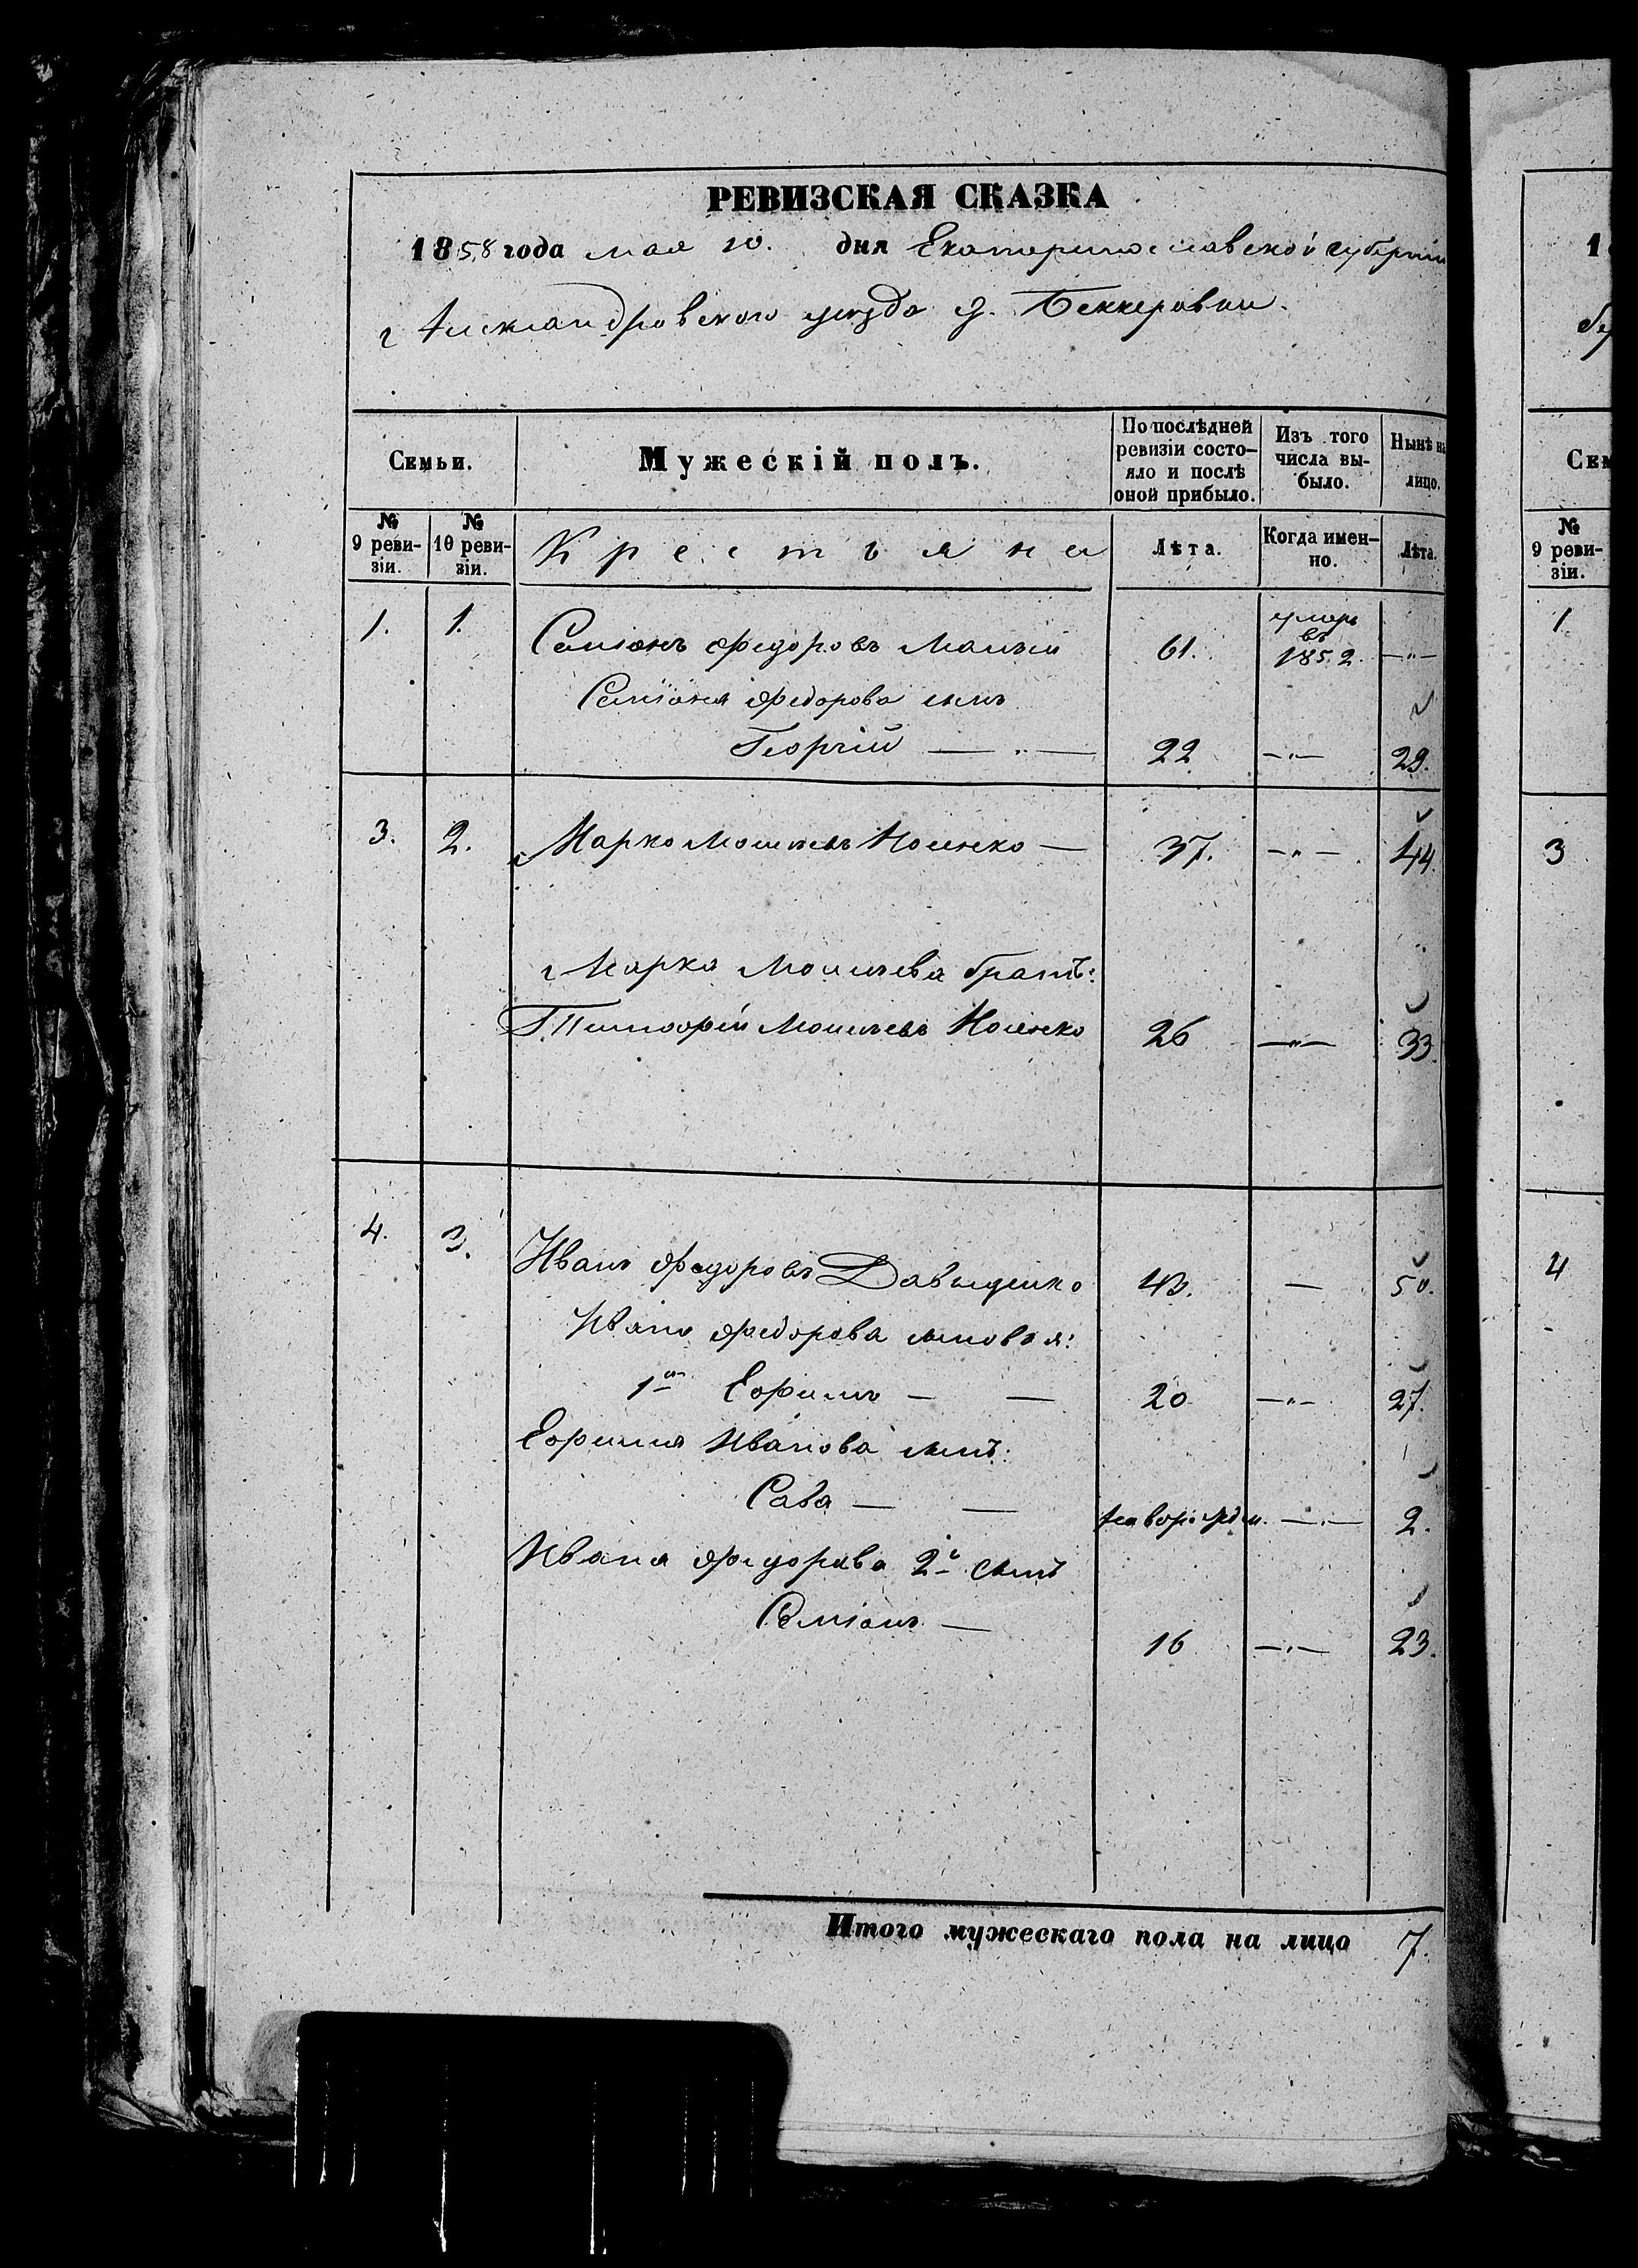 РЕВИЗСКАЯ СКАЗКА
1858 года мая 10. дня Екатеринославской губерніи
Александровскаго уѣзда д. Беккеровки.
Семьи.
Мужескій полъ.
По послѣдней ревизіи состо-
яло и послѣ
оной прибыло.
Изъ того
числа вы-
было.
Нынѣ на
лицо.
№
9 реви-
зіи.
№
10 реви-
зіи.
Крестьяне
Лѣта.
Когда имен-
но.
Лѣта.
1. 1. Семіонъ Федоровъ 61. умеръ въ 1852 —„—
Семіона Федорова сынъ
Георгій —„— 22 —„— 29.
3. 2. Марко Моисеевъ — 37. —„— 44.
Марка Моисеева братъ:
Тимофей Моисеевъ 26 —„— 33.
4. 3. Иванъ Федоровъ Давыденко 43. — 50.
Ивана Федорова сыновья:
1й Ефимъ — — 20 —„— 27.
Ефима Иванова сынъ:
Сава — — новорожден. —„— 2.
Ивана Федорова 2й сынъ
Семіонъ — 16 —„— 23.
Итого мужескаго пола на лицо 7.
1
Сем
№
9 реви-
зіи.
1
3
4